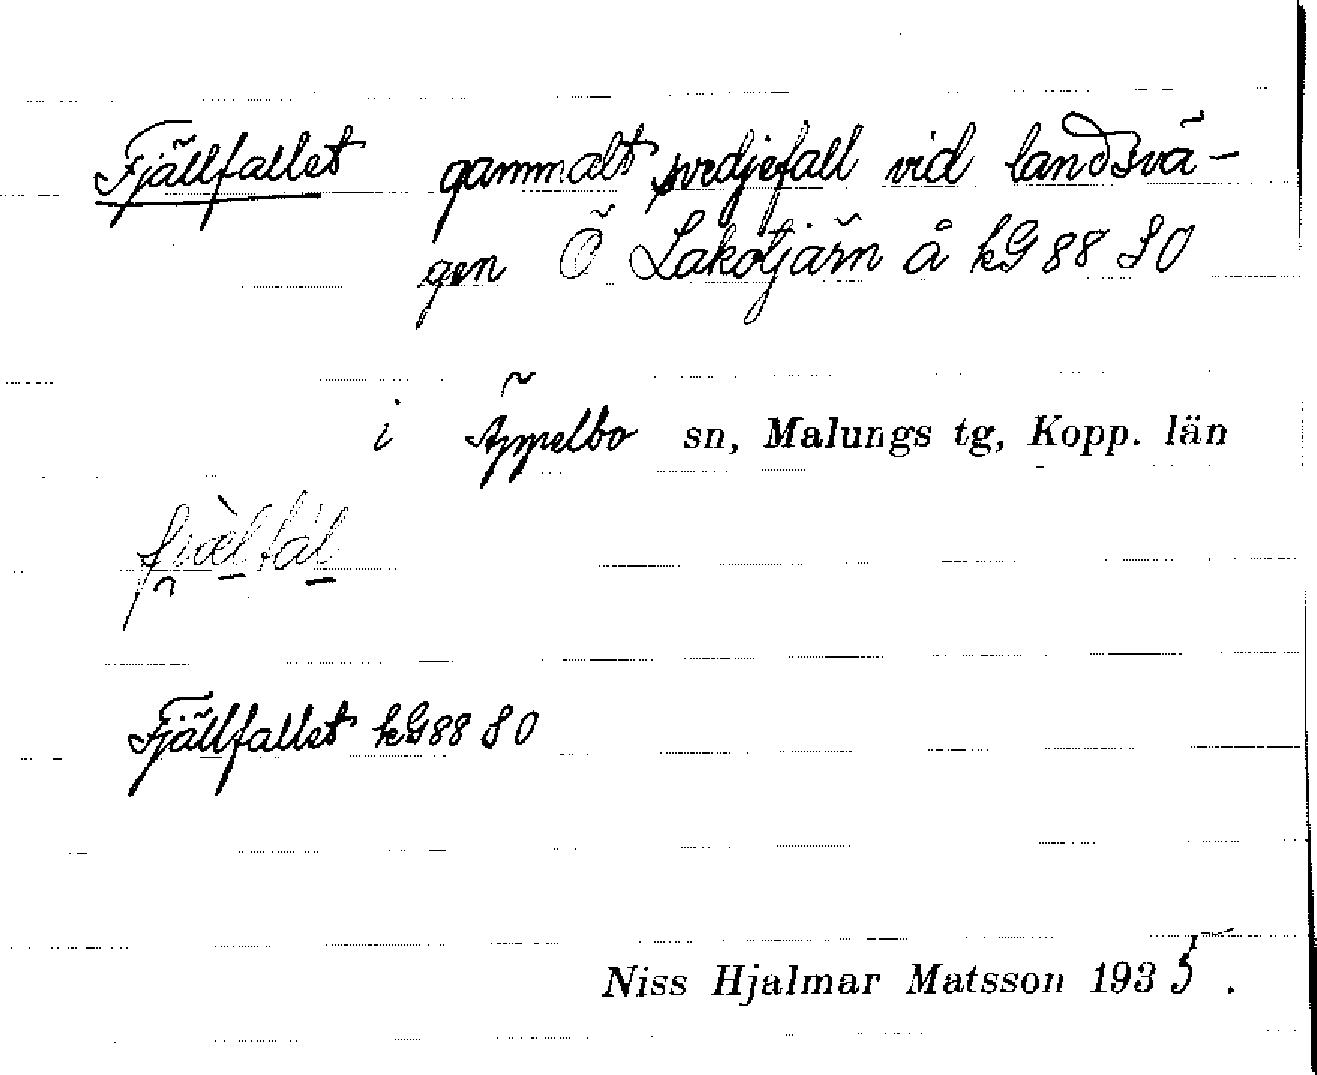 Fjällfallet gammalt svedjefall vid landsvä-
gen Ö Lakotjärn å kG 88 S O
i Äppelbo sn, Malungs tg, Kopp. län
fjæ̀lfál
Fjällfallet kG 88 S O
Niss Hjalmar Matsson 1935.